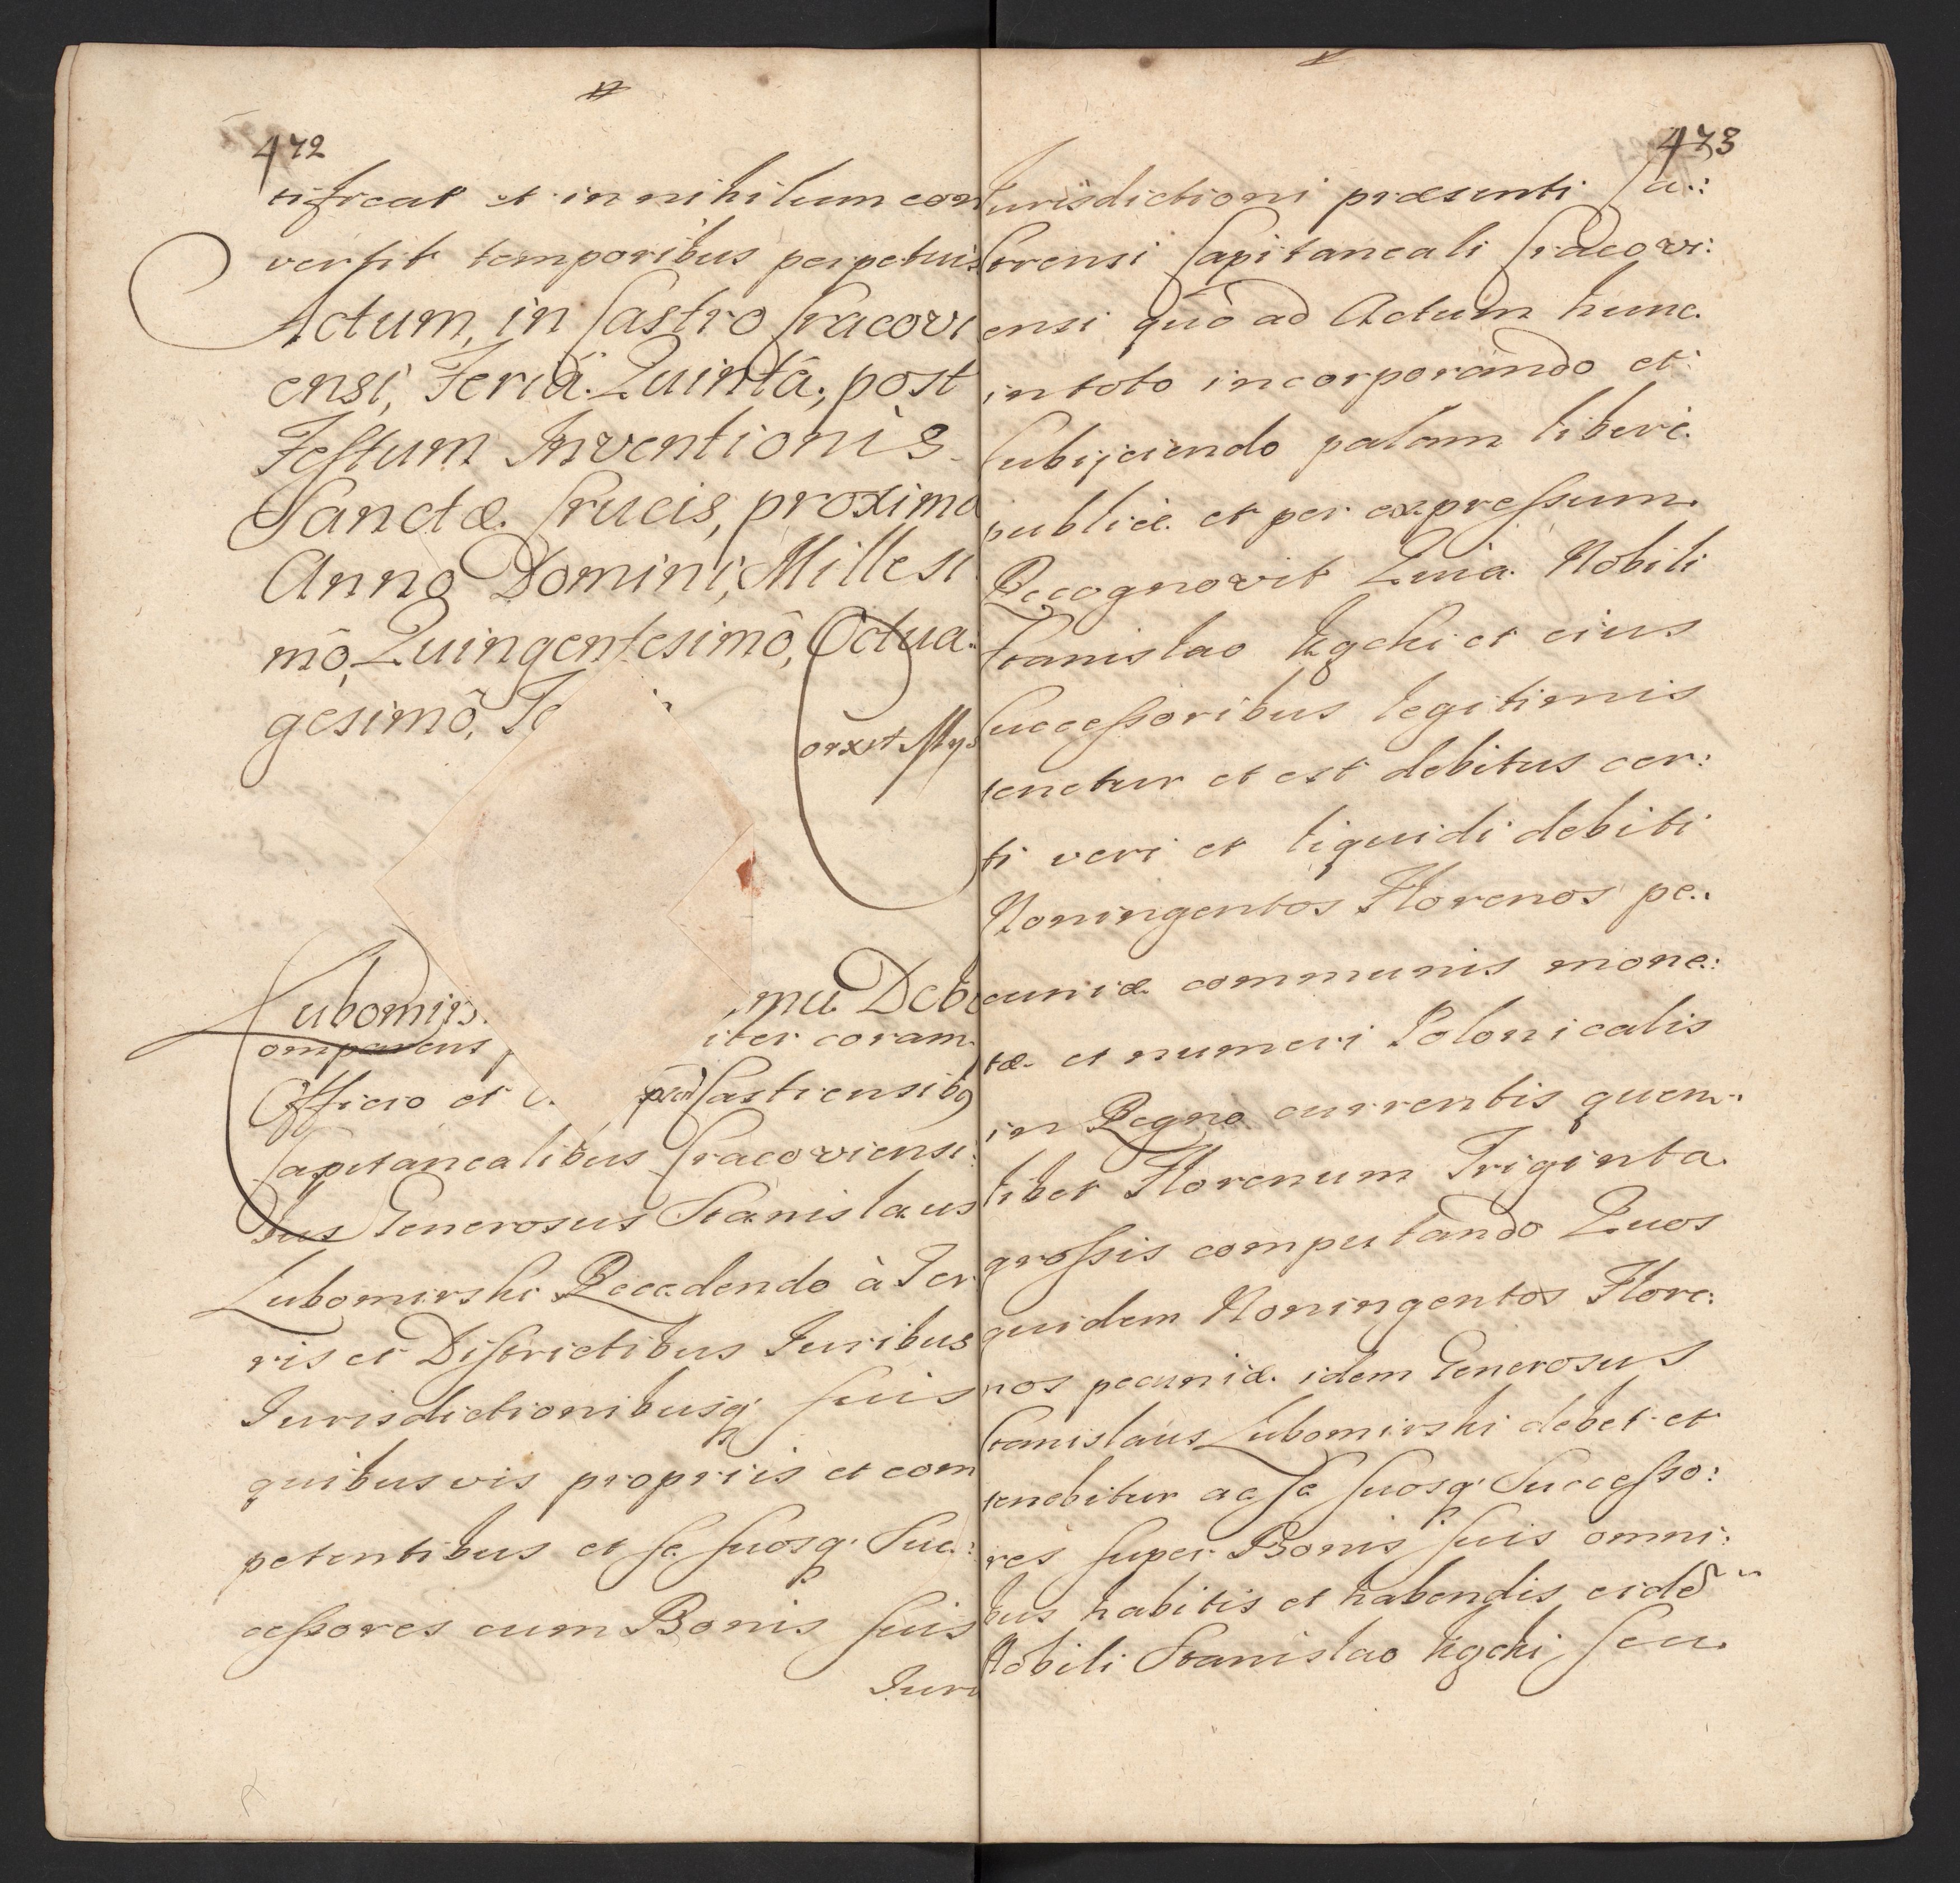 472
tificat et in nihilum con
vertit temporibus perpetuis
Actum, in Castro Cracovi
ensi, Feriâ Quintâ, post
Festum Inventionis
Sanctæ Crucis, proxima
Anno Domini, Millesi
mô, Quingentesimô, Octua:
gesimô, Te
Lubomirs ma Debi
omparens iter coram
Officio et Castrensibq
Capitanealibus Cracoviensi:
bus Generosus Stanislaus
Lubomirski Recedendo à Ter
ris et Districtibus Iuribus
Iurisdictionibusq suis
quibusvis propriis et com
petentibus et se suosq Suc:
cessores cum Bonis suis
Iuri
473
Iurisdictioni præsenti Ca:
strensi Capitaneali Cracovi:
ensi quo ad Actum hunc
in toto incorporando et
subijciendo palam liberè
publicè et per expressum
Recognovit Quia Nobili
Stanislao et eius
Successoribus legitimis
tenetur et est debitus cer:
ti veri et liquidi debiti
Noningentos Florenos pe:
cuniæ communis mone:
tæ et numeri Polonicalis
in Regno currentis quem:
libet Florenum Triginta
grossis computando Quos
quidem Noningentos Flore:
nos pecuniæ idem Generosus
Stanislaus Lubomirski debet et
tenebitur ac se suosq Successo:
res super Bonis suis omni:
bus habitis et habendis eidẽ
Nobili Stanislao seu